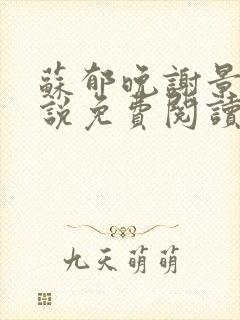 蘇郁晚謝景
說免費閱讀
九天萌萌